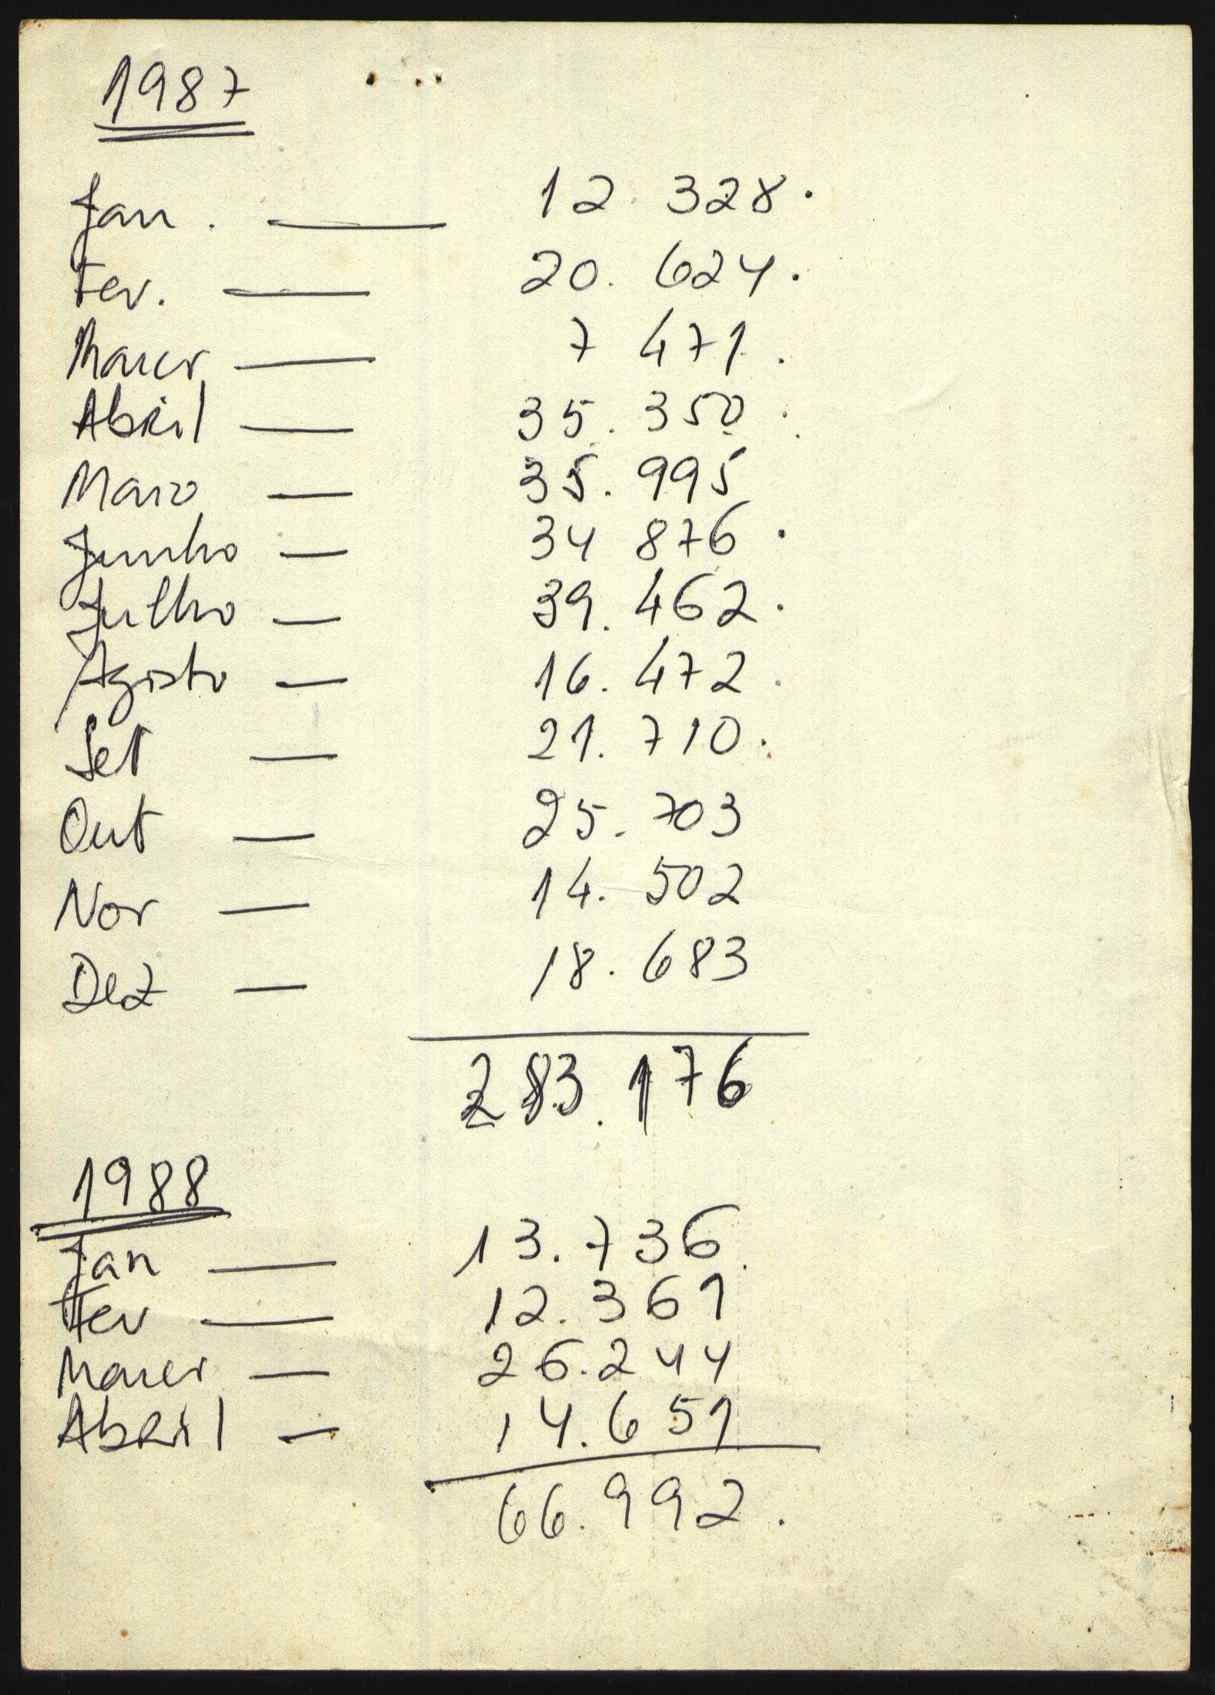 1987
Jan. — 12.328.
Fev. — 20.624.
Março — 7 471.
Abril — 35.350.
Maio — 35.995
Junho — 34 876.
Julho — 39.462.
Agosto — 16.472.
Set — 21.710.
Out — 25.703
Nov — 14.502
Dez — 18.683
283.176
1988
Jan — 13.736
Fev — 12.361
Março — 26.244
Abril — 14.651
66.992.